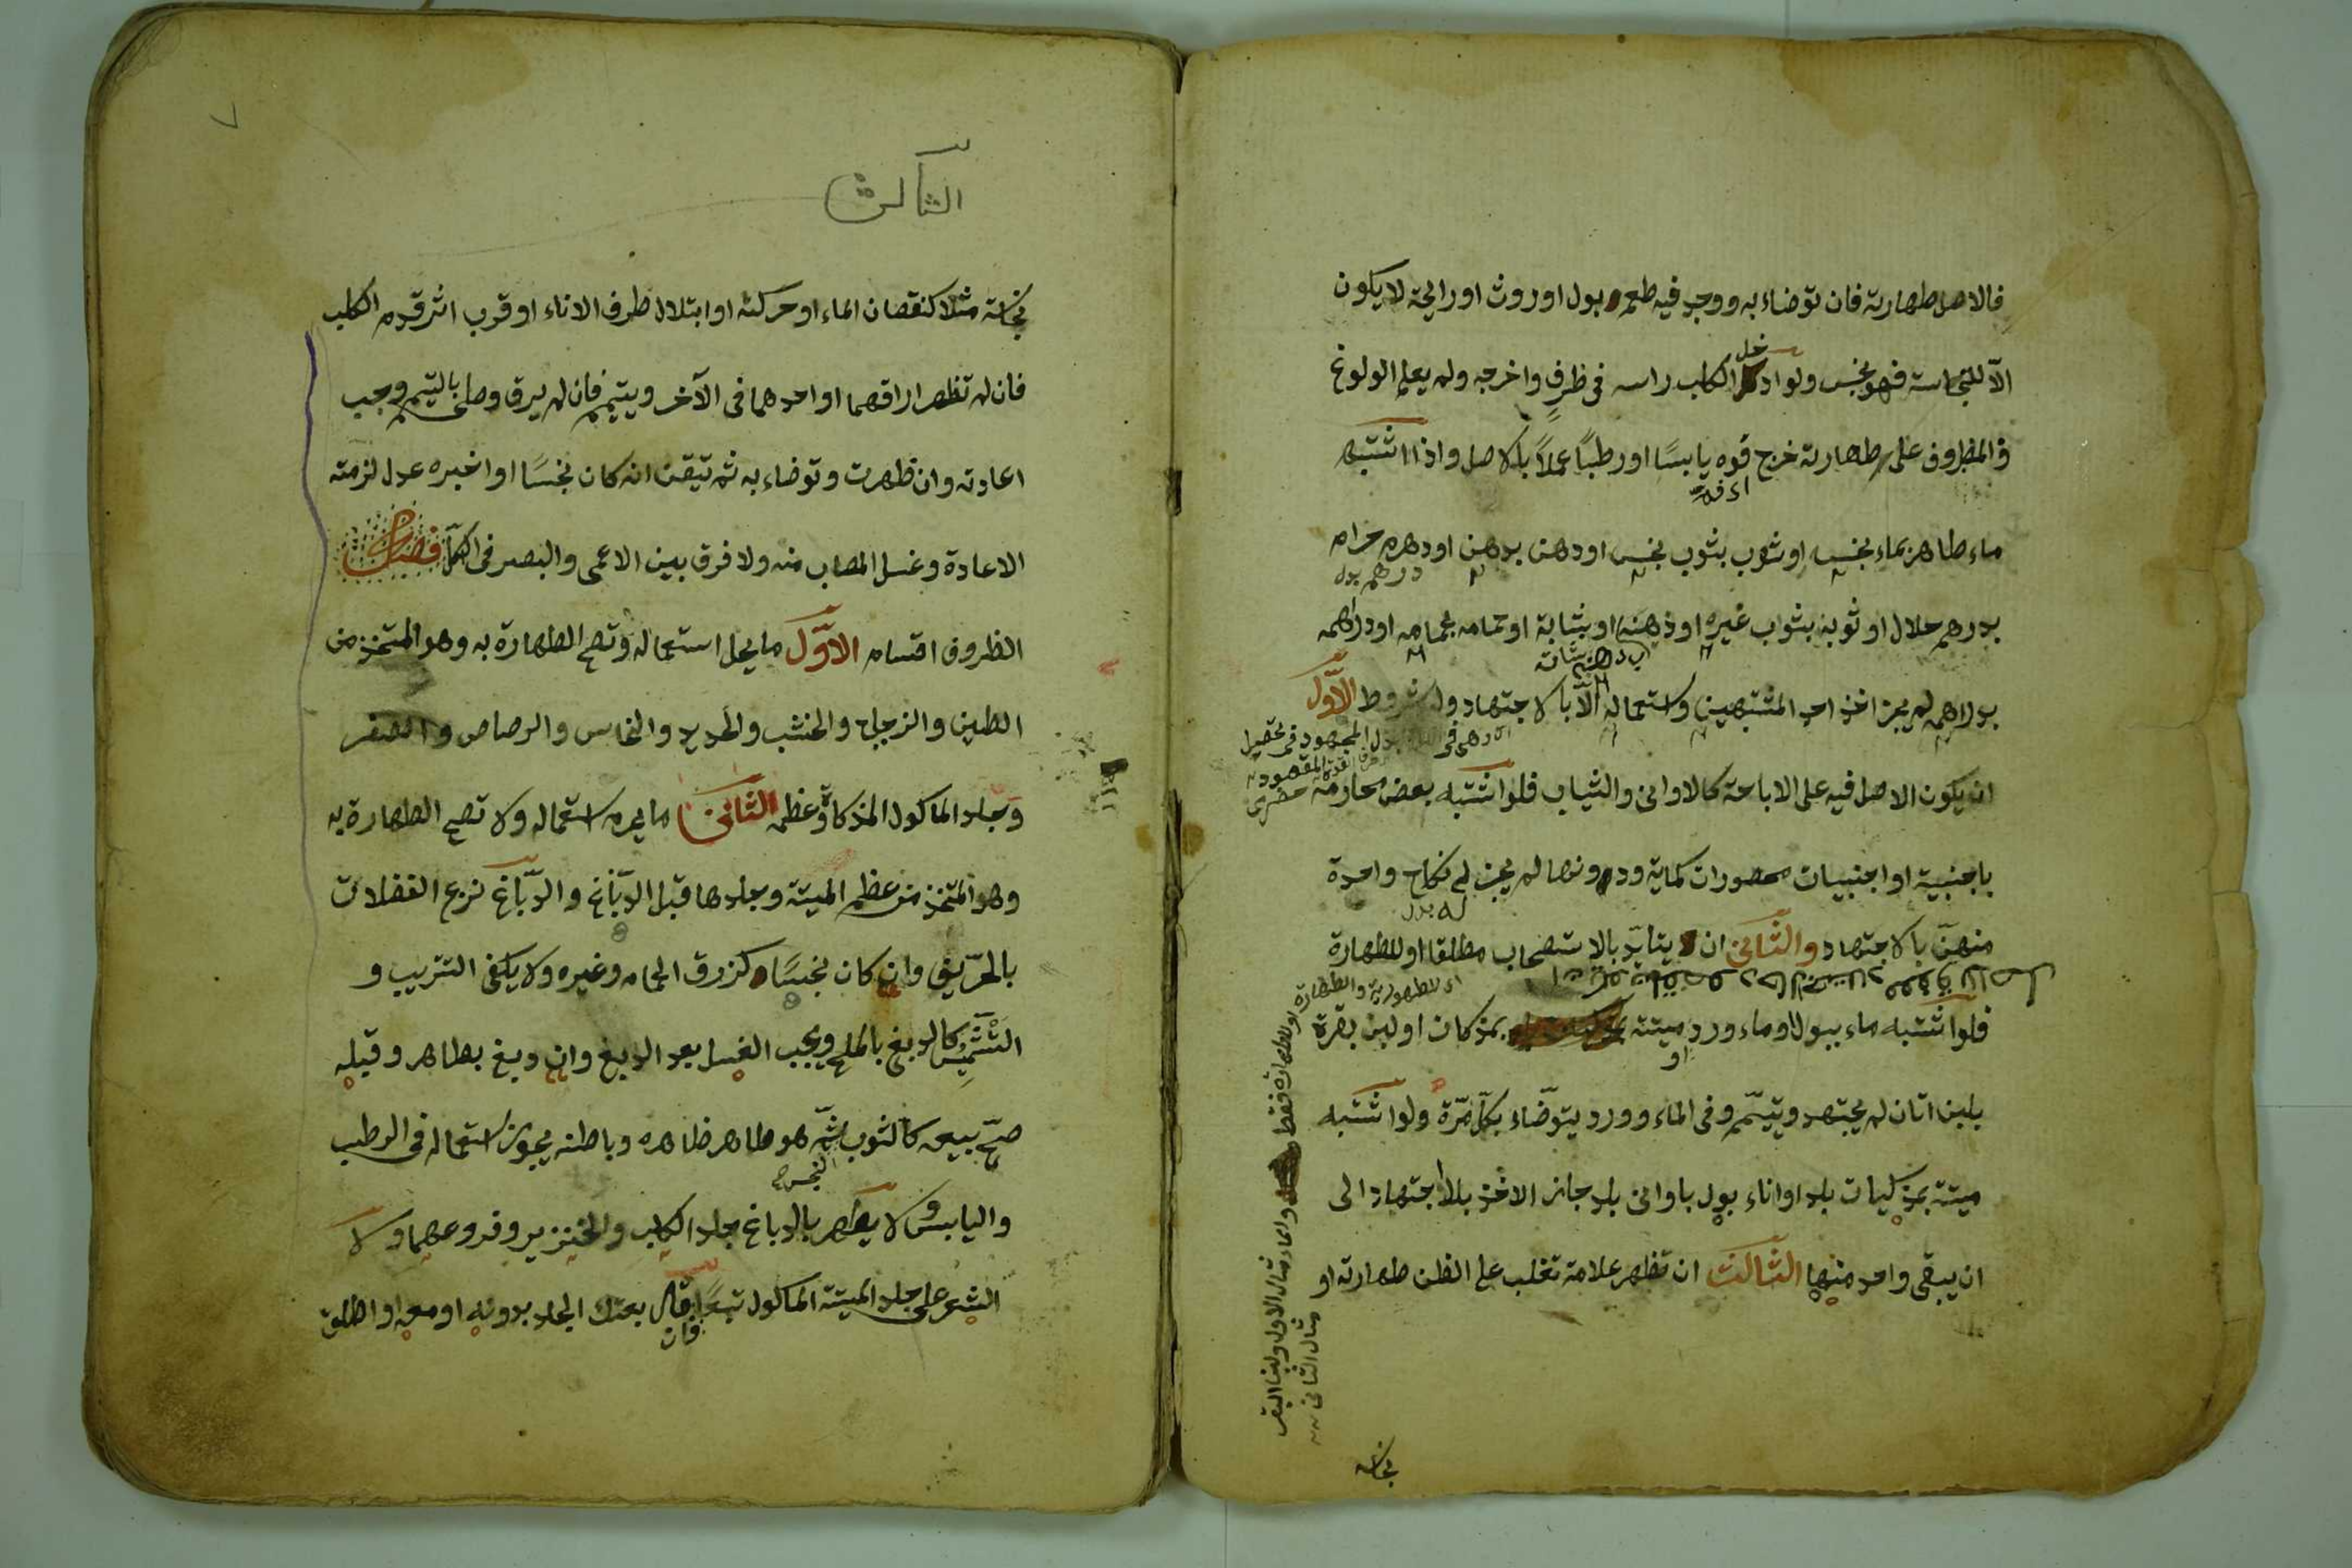 فالاصل طهارته فان توضاء به ووجد فيه طعم بول او روث او رايحة لا يكون
الّا للنجاسة فهو نجس ولو ادخل الكلب راسه فى ظرفٍ واخرجه ولم يعلم الولوغ
فالمظروف على طهارته خرج فوه يابسًا او رطبًا عملاً بالاصل واذا اشتبه
اى فمه
ماء طاهر بماء نجس او ثوب بثوب نجس او دهن بدهن او درهم حرام
درهم بدل
بدرهم حلال او ثوبه بثواب غيره او ذهنه او بشاته او حمامه بحمامه او دراهمه
بدراهمه لم يجز اخذ احد المشتبهين واستعماله الّا بالاجتهاد وله شروط الاوّل
ان يكون الاصل فيه على الاباحة كالاوانى والثياب فلو اشتبه بعض محارمه
باجنبية او اجنبيات محصورات كماية ودونها لم يجز له نكاح واحدة
له بدل
منهنّ بالاجتهاد والثانى ان يتايّد بالاستصحاب مطلقا او للطهارة
اى للطهورية والطهارة
فلو اشتبه ماء ببول او ماء ورد ميتته بمذكان او لبن بقرة
او
بلبن اتان لم يجتهد ويتيمّم وفى الماء وورد يتوضّاء بكلّ مرّة ولو اشتبه
ميتته بمذكيات بلد او اناء بول باوانى بلد جاز الاخذ بلا اجتهاد الى
ان يبقى واحد منها الثالث ان تظهر علامة تغلب على الظن طهارته او
مثال الثانى
نجاسة
٧
الثالث
نجاسة مثلا كنقصان الماء او حركته او ابتلال طرف الاناء او قرب اثر قدم الكلب
فان لم تظهر اراقهما او احدهما فى الآخر ويتيمم فان لم يرق وصلى بالتيمم وجب
اعادته وان ظهرت وتوضاء به ثم تيقن انه كان نجسًا او اخبره عدل لزمته
الاعادة وغسل المصاب منه ولا فرق بين الاعمى والبصير فى الكلّ فصل
الظروف اقسام الاوّل ما يحل استعماله وتصح الطهارة به وهو المتخذ من
الطين والزجاج والخشب والحديد والنحاس والرصاص والصفر
وجلد الماكول المذكاة وعظمه الثانى ما يحرم استعماله ولا تصح الطهارة به
وهو المتخذ من عظم الميتة وجلدها قبل الدّباغ والدّباغ نزع الفضلات
بالحرّيف وان كان نجسًا كذرق الحمام وغيره ولا يكفى التتريب و
التشميس كالدبغ بالملح ويجب الغسل بعد الدبغ وان دبغ بطاهر وقبله
صحّ بيعه كالثوب ثمّ هو طاهر ظاهره وباطنه يجوز استعماله فى الرطب
النجس
واليابس ولا يطهر بالدباغ جلد الكلب والخنزير وفروعهما ولا
الشعر على جلد الميتة الماكول تبعًا قال بعتك الجلد بدونه او معه او اطلق
فان